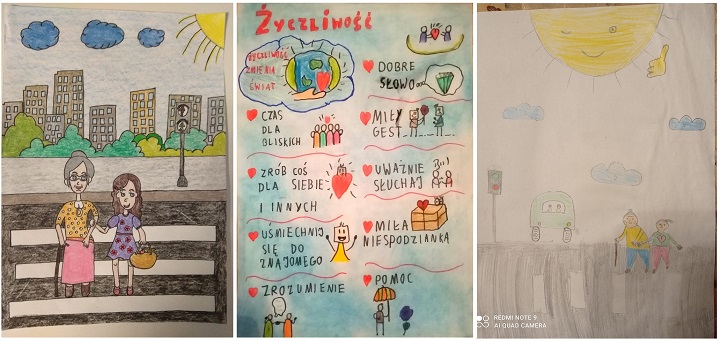 Życzliwość
ŻYCZLIWOŚĆ
ZMIENIA
ŚWIAT
CZAS
DLA
BLISKICH
ZRÓB COŚ
DLA SIEBIE
I INNYCH
UŚMIECHNIJ
SIĘ DO
ZNAJOMEGO
ZROZUMIENIE
DOBRE
SŁOWO
MIŁY
GEST
UWAŻNIE
SŁUCHAJ
MIŁA
NIESPODZIANKA
POMOC
REDMI NOTE 9
AI QUAD CAMERA